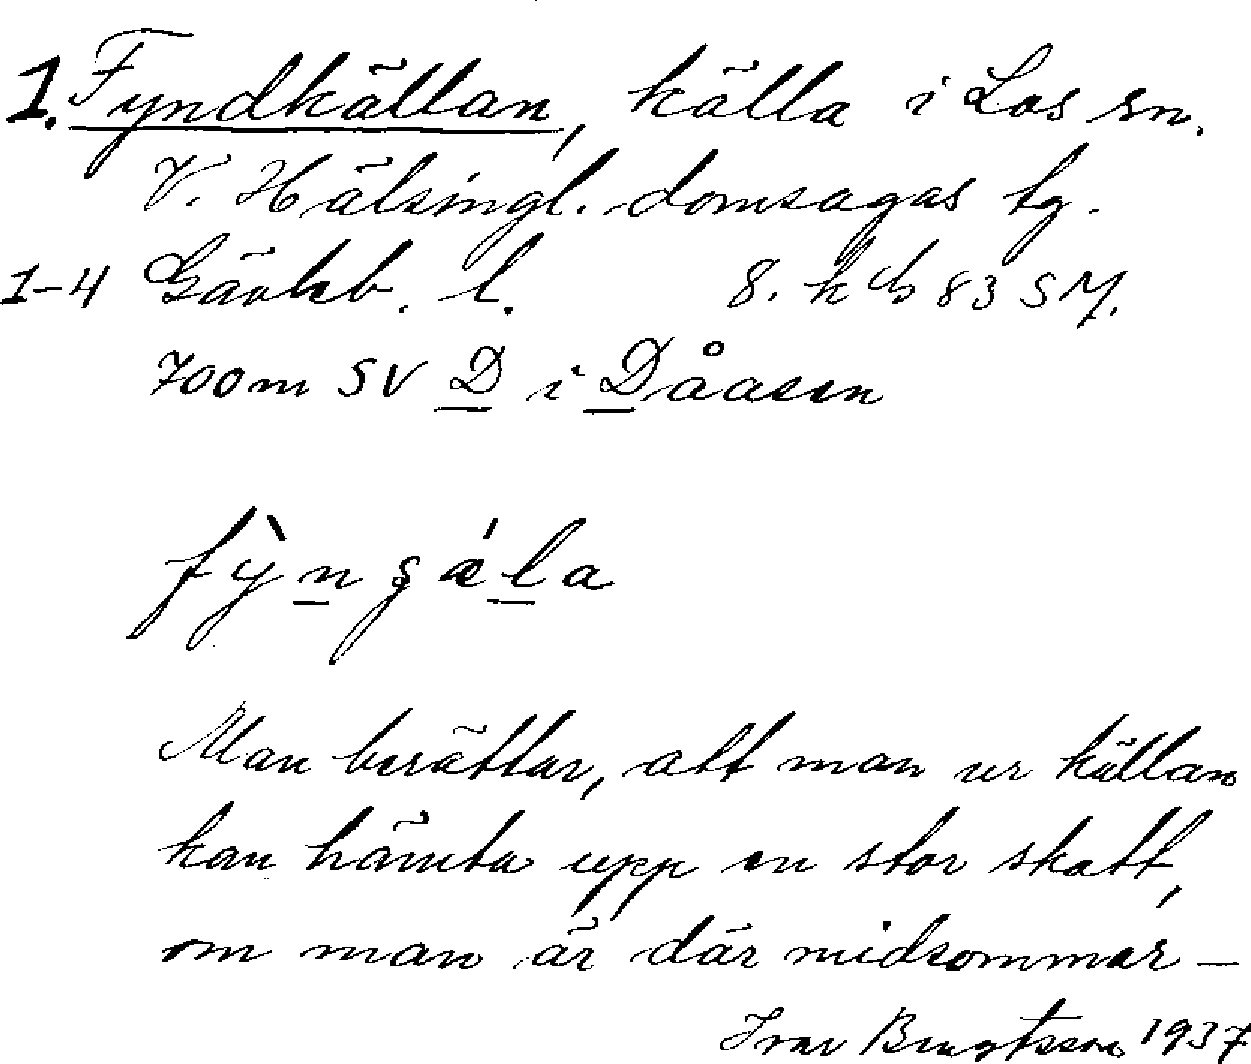 1. Fyndkällan, källa i Los sn.
V. Hälsingl. domsagas tg.
1-4 Gävleb. l. 8. h cb 83 SM.
700m SV D i Dåasen
fỳngǽla
Man berättar, att man ur källan
kan hämta upp en stor skatt,
om man är där midsommar-
Ivar Bengtsson 1937